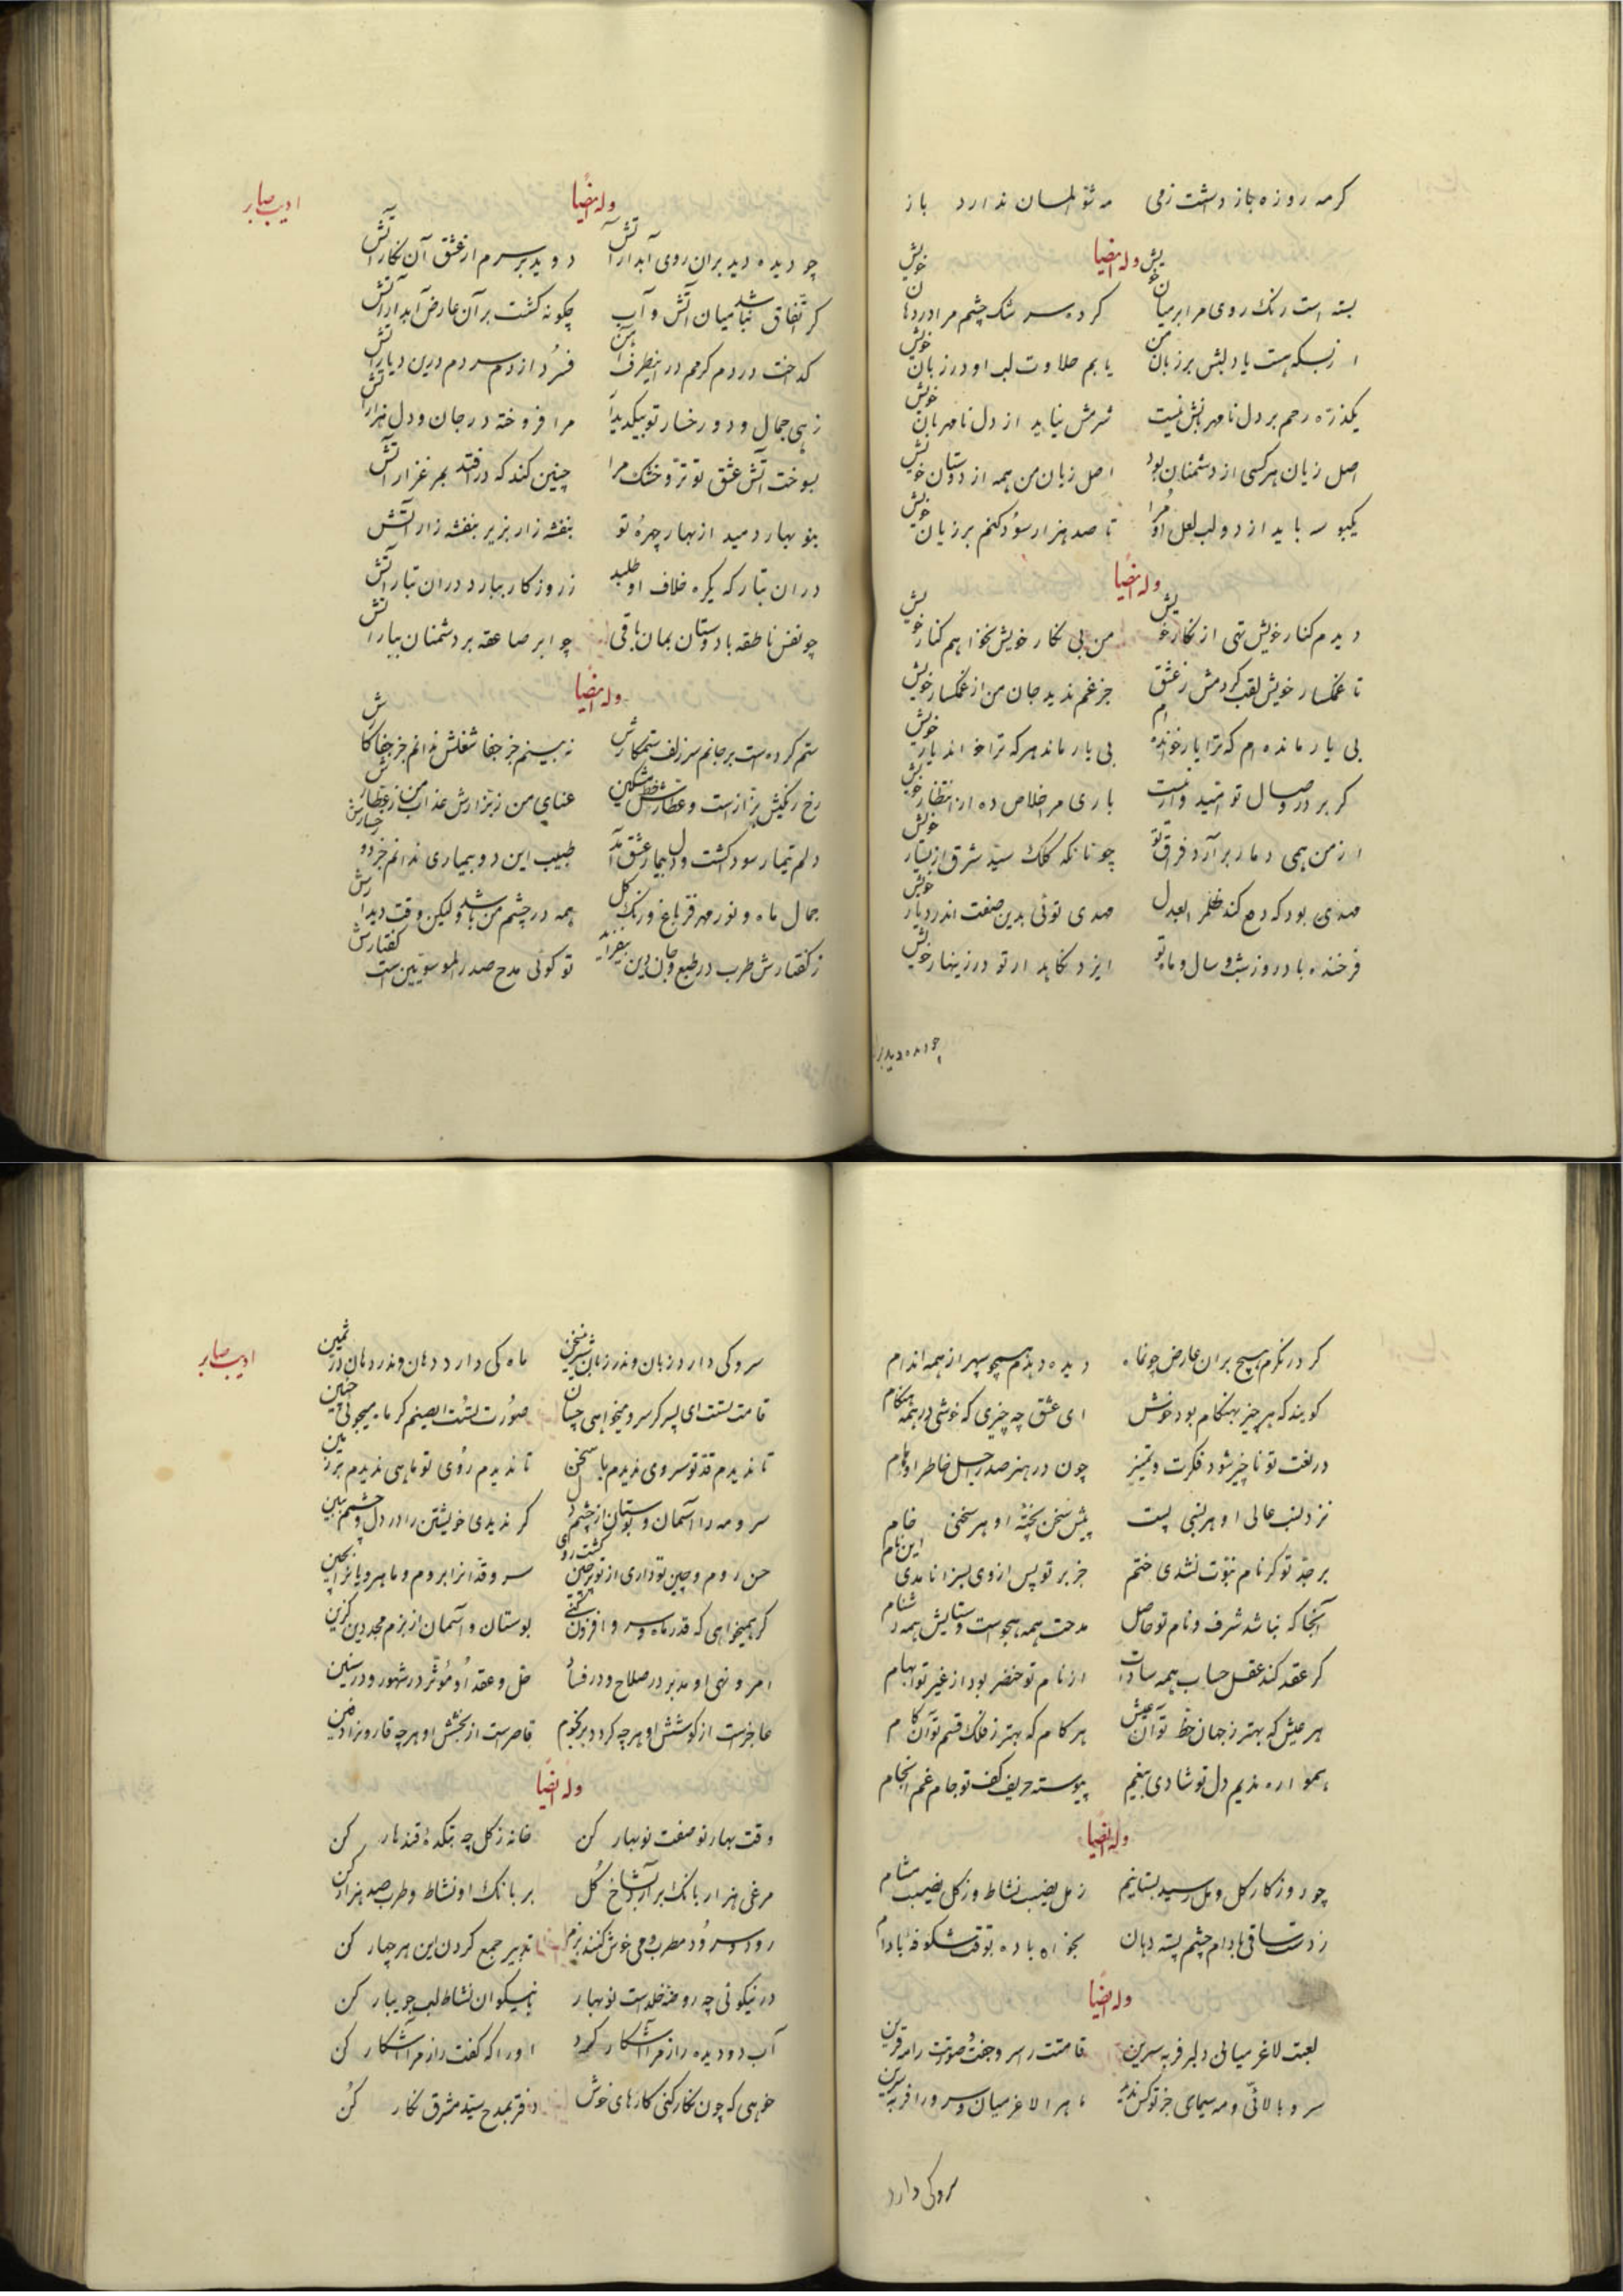 کرمه روزه باز داشت زمی مه شوال مسان ندارد باز
وله ایضا
بسته است رنک روی مرا بر میان خویش کرد سرشک چشم مرا در دهان خویش
از بسکه هست یاد لبش بر زبان من یابم حلاوت لب او در زبان خویش
یکذره رحم بر دل نامهربانش نیست شرمش نیاید از دل نامهربان خویش
اصل زیان هرکسی از دشمنان بود اصل زیان من همه از دوستان خویش
یکبوسه باید از دو لب لعل او مرا تا صد هزار سود کنم بر زیان خویش
وله ایضا
دیدم کنار خویش تهی از نکار خویش من بی نکار خویش نخواهم کنار خویش
تا غمکسار خویش لقب کردمش ز عشق جز غم ندید جان من از غمکسار خویش
بی یار مانده ام که ترا یار خوانده ام بی یار ماند هرکه ترا خواند یار خویش
کر بر در وصال تو امید وار نیست باری مرا خلاص ده از انتظار خویش
از من همی دمار برآرد فراق تو چونانکه کلک سید شرق از یسار خویش
مهدی بود که دفع کند ظلم را بعدل مهدی توئی بدین صفت اندر دیار خویش
فرخنده باد روز و شب و سال و ماه تو ایزد نکاهدار تو در زینهار خویش
چو دیده دید بر
ادیب صابر
وله ایضا
چو دیده دید بران روی آبدار آتش دوید بر سرم از عشق آن نکار آتش
کر اتفاق نباشد میان آتش و آب چکونه کشت بر آن عارض آبدار آتش
کداخت در دم کرمم در انطرف آهن فسرد از دم سردم درین دیار آتش
زهی جمال و دو رخسار تو بیکدیدار مرا فروخته در جان و دل هزار آتش
بسوخت آتش عشق تو تر و خشک مرا چنین کند که درافتد بمرغزار آتش
بنوبهار دمید از بهار چهرهٔ تو بنفشه زار بزیر بنفشه زار آتش
دران تبار که یکره خلاف او طلبد ز روزکار ببارد دران تبار آتش
چو نفس ناطقه با دوستان بمان باقی چو ابر صاعقه بر دشمنان ببار آتش
وله ایضا
ستم کردست بر جانم سر زلف ستمکارش نه بینم جز جفا شغلش ندانم جز جفا کارش
رخ رنکینش بزازست و عطارش خط مشکین عنای من ز بزازش عذاب من ز عطارش
دلم تیمار سود کشت و دل بیمار عشق آمد طبیب این دو بیماری ندانم جز دو رخسارش
جمال ماه و نور مهر و فر باغ و رنک کل همه در چشم من باشد ولیکن وقت دیدارش
ز کفتارش طرب در طبع و جان و دین بیفزاید تو کوئی مدح صدر الموسویین است کفتارش
کر درنکرم هیچ بران عارض چو نماه دیده دهدم همچو سپهر از همه اندام
کویند که هر چیز بهنکام بود خوش ای عشق چه چیزی که خوشی در همه هنکام
در نعت تو ناچیز شود فکرت و تمییز چون در هنر صدر اجل خاطر اوهام
نزد لقب عالی او هر لقبی پست پیش سخن پختهٔ او هر سخنی خام
بر جد تو کر نام نبوت نشدی ختم جز بر تو پس از وی بسزا نامدی این نام
آنجا که نباشد شرف و نام تو حاصل مدحت همه هجوست و ستایش همه دشنام
کر عقد کند عقل حساب همه سادات از نام تو خنصر بود از غیر تو ابهام
هر عیش که بهتر ز جهان حظ تو آن عیش هر کام که بهتر ز فلک قسم تو آن کام
همواره ندیم دل تو شادی بیغم پیوسته حریف کف تو جام غم انجام
وله ایضا
چو روزکار کل و مل رسید بستانیم ز مل نصیب نشاط و ز کل نصیب مشام
ز دست ساقی بادام چشم پسته دهان بخواه باده بوقت شکوفهٔ بادام
وله ایضا
لعبت لاغر میانی دلبر فربه سرین قامتت سرو جفت و صورتت را مه قرین
سرو بالائی و مه سیمای جز تو کس ندید ماهرا لاغر میان و سرو را فربه سرین
سرو کی دارد
ادیب صابر
سرو کی دارد زبان و در زبان شیرین سخن ماه کی دارد دهان و در دهان در ثمین
قامت تست ای پسر کر سرو میخواهی چنان صورت تست ایصنم کر ماه میجوئی چنین
تا ندیدم قد تو سروی ندیدم با سخن تا ندیدم روی تو ماهی ندیدم بر زمین
سرو و مه را آسمان و بوستان از چشم و دل کر ندیدی خویشتن را در دل و چشمم ببین
حسن روم و چین تو داری از تو پرچین کشت روی سرو قد انرا بروم و ماهرویانرا بچین
کر همیخواهی که قدر ماه و سرو افزون کنی بوستان و آسمان از بزم مجددین کزین
امر و نهی او مدبر در صلاح و در فساد حل و عقد او مؤثر در شهور و در سنین
عاجزست از کوشش او هرچه کردد بر نجوم قاصرست از بخشش او هرچه قارون زاد دفین
وله ایضا
وقت بهار نو صفت نوبهار کن خانه ز کل چه بتکدهٔ قندهار کن
مرغی هزار بانک برآرد ز شاخ کل بر بانک او نشاط و طرب صد هزار کن
رود و سرود مطرب و می خوش کنند بزم تدبیر جمع کردن این هر چهار کن
در نیکوئی چه روضه خلدست نوبهار با نیکوان نشاط لب جویبار کن
آب دو دیده راز مرا آشکار کرد او را که کفت راز مرا آشکار کن
خواهی که چون نکار کنی کارهای خوش دفتر بمدح سید مشرق نکار کن